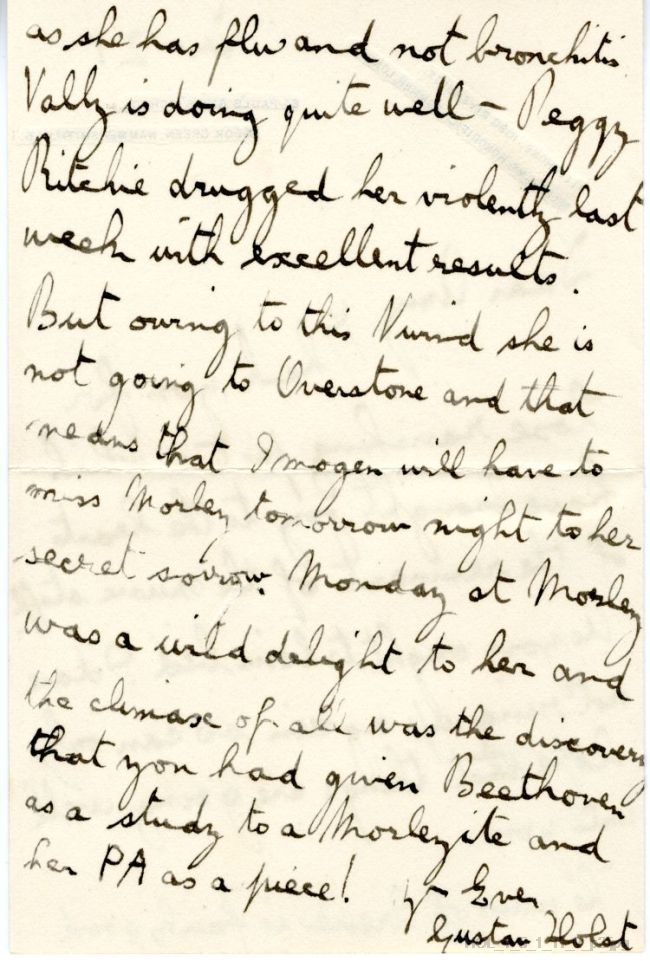 as she has flu and not bronchitis
Vally is doing quite well – Peggy
Ritchie drugged her violently last
week with excellent results.
But owing to this Vwind she is
not going to Overstone and that
means that Imogen will have to
miss Morley tomorrow night to her
secret sorrow. Monday at Morley
was a wild delight to her and
the climax of all was the discovery
that you had given Beethoven
as a study to a Morleyite and
her PA as a piece!
Yr Ever
Gustav Holst